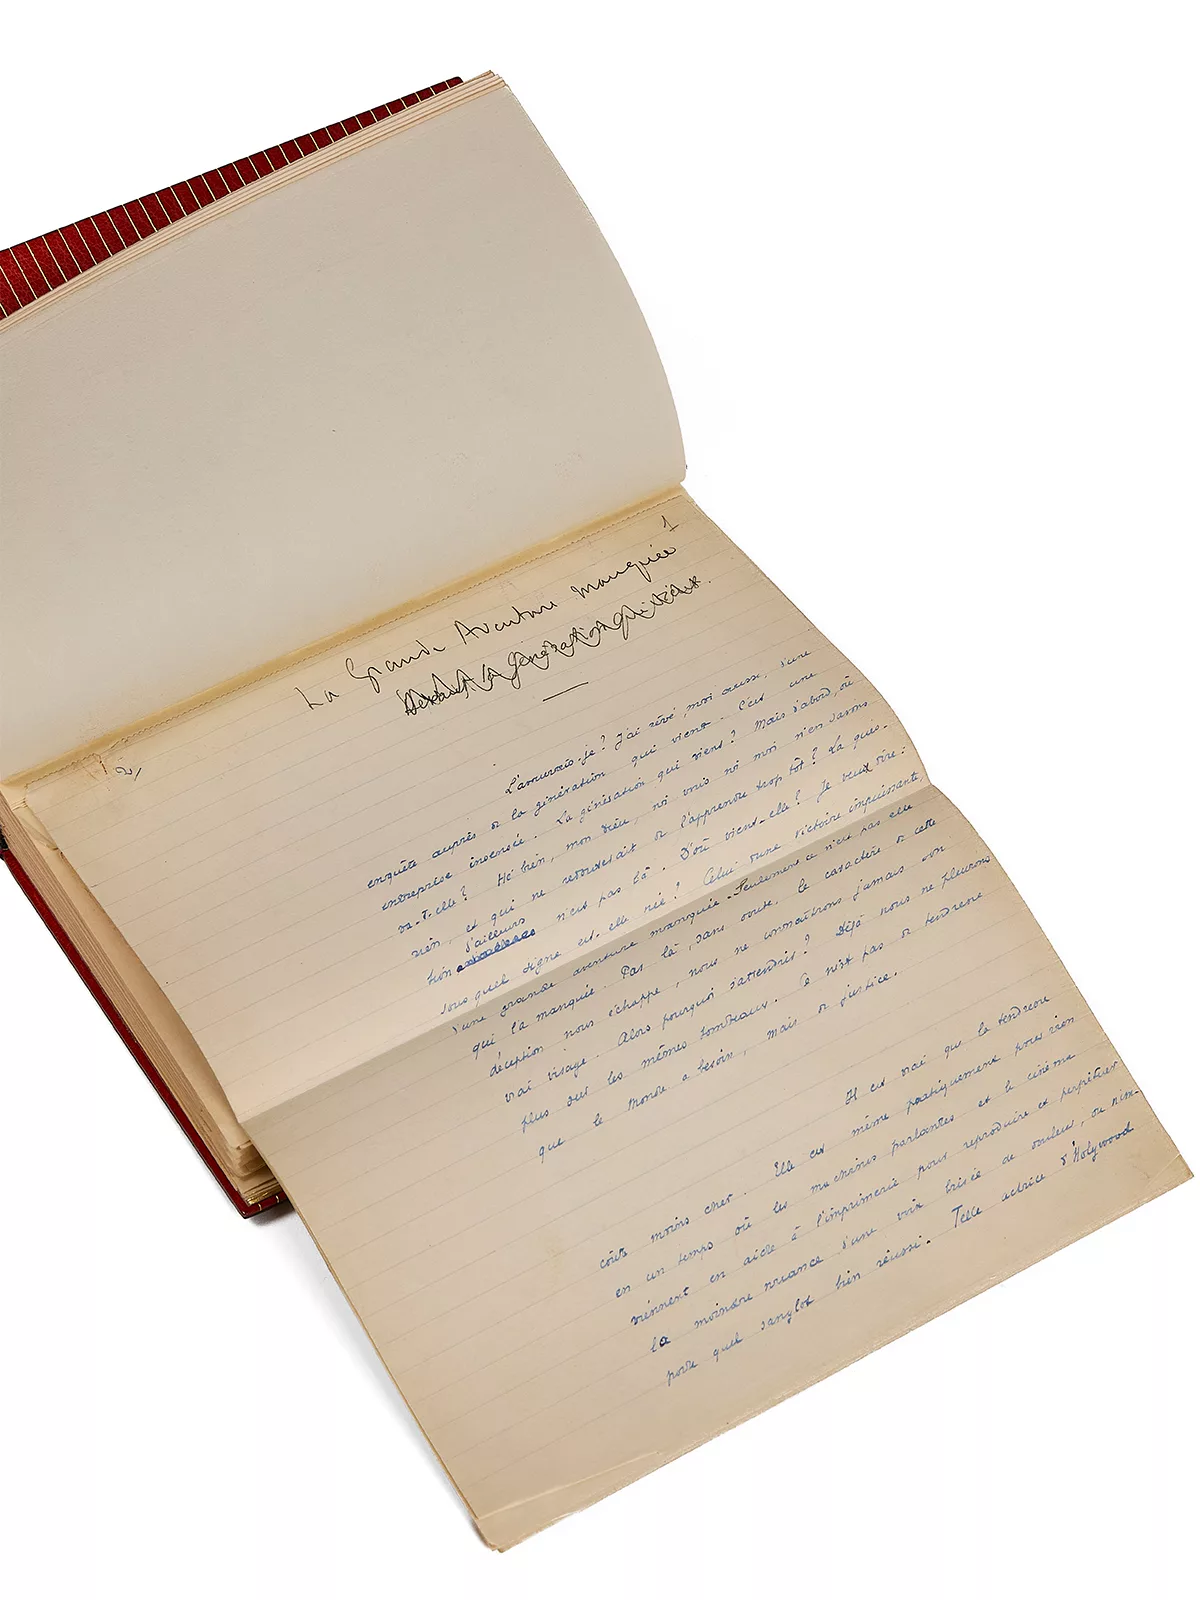 1
La Grande Aventure manquée
Devant la génération qui vient.
2/
L'avouerais-je ? J'ai rêvé, moi aussi, d'une
enquête auprès de la génération qui vient. C'est une
entreprise insensée. La génération qui vient ? Mais d'abord, où
va-t-elle ? Hé bien, mon Dieu, ni vous ni moi n'en savons
rien, et qui ne redouterait de l'apprendre trop tôt ? La ques-
tion d'ailleurs n'est pas là. D'où vient-elle ? Je veux dire :
sous quel signe est-elle née ? Celui d'une victoire impuissante,
d'une grande aventure manquée. Seulement ce n'est pas elle
qui l'a manquée. Par là, sans doute, le caractère de cette
déception nous échappe, nous ne connaîtrons jamais son
vrai visage. Alors pourquoi s'attendrir ? Déjà nous ne pleurons
plus sur les mêmes tombeaux. Ce n'est pas de tendresse
que le monde a besoin, mais de justice.
Il est vrai que la tendresse
coûte moins cher. Elle est même pratiquement pour rien
en un temps où les machines parlantes et le cinéma
viennent en aide à l'imprimerie pour reproduire et perpétuer
la moindre nuance d'une voix brisée de douleur, ou n'im-
porte quel sanglot bien réussi. Telle actrice d'Holywood